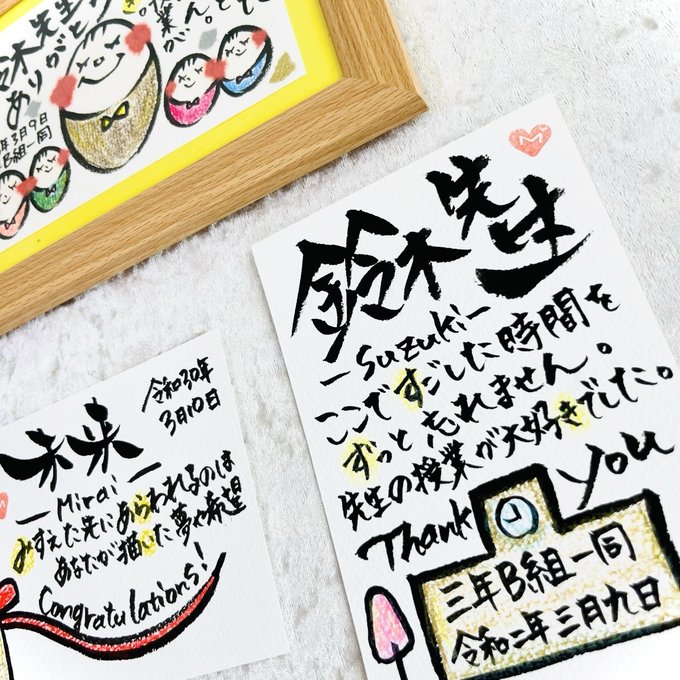 鈴木先生
ありがとう
3月9日
B組一同
M
鈴木先生
-Suzuki-
ここですごした時間を
ずっと忘れません。
先生の授業が大好きでした。
Thank You
三年B組一同
令和二年三月九日
令和30年
3月10日
未来
-Mirai-
みすえた先にあらわれるのは
あなたが描いた夢や希望
Congratulations!